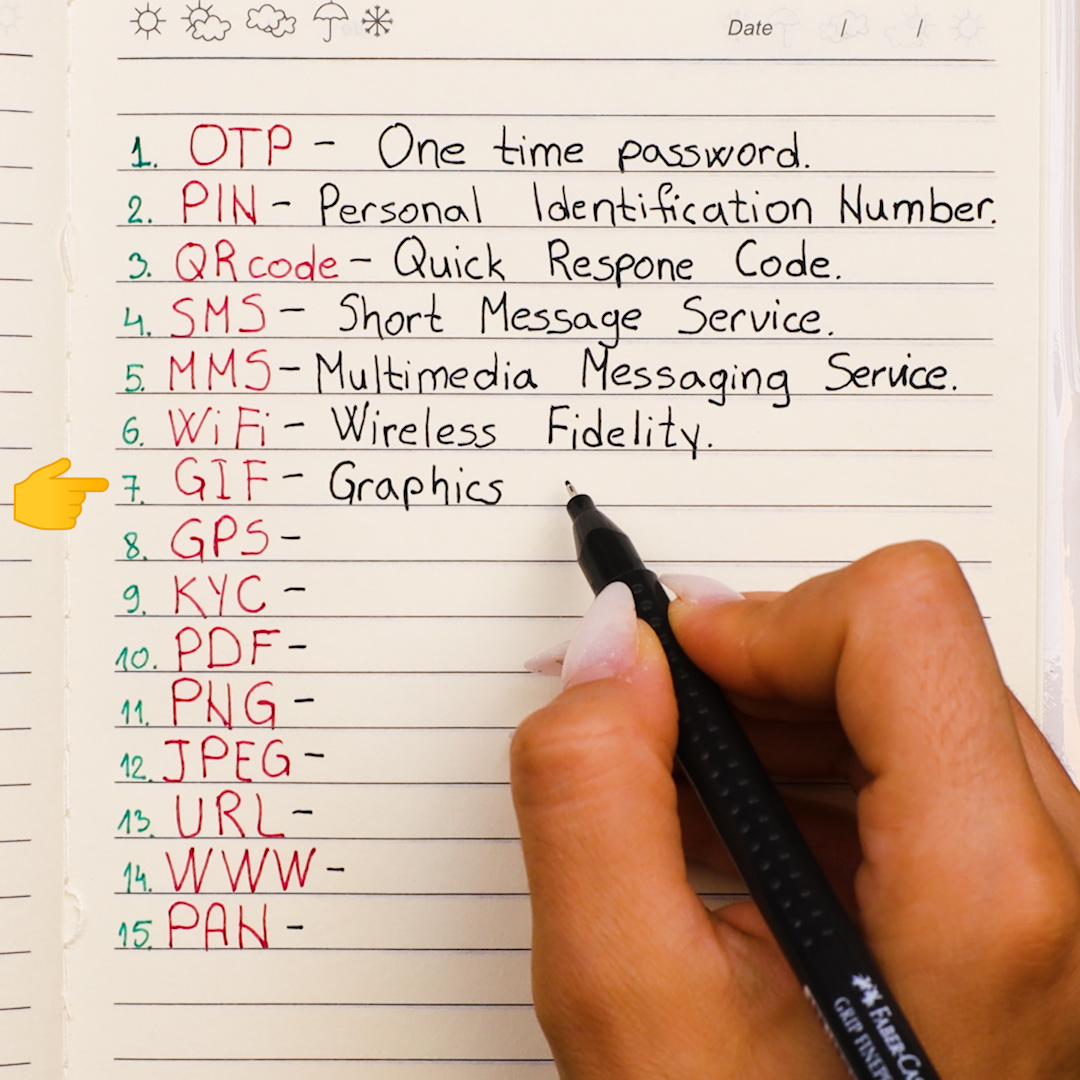 Date / /
1. OTP - One time password.
2. PIN - Personal Identification Number.
3. QR code - Quick Respone Code.
4. SMS - Short Message Service.
5. MMS - Multimedia Messaging Service.
6. WiFi - Wireless Fidelity.
7. GIF - Graphics
8. GPS -
9. KYC -
10. PDF -
11. PNG -
12. JPEG -
13. URL -
14. WWW -
15. PAN -
FABER-CA
GRIP FINEP